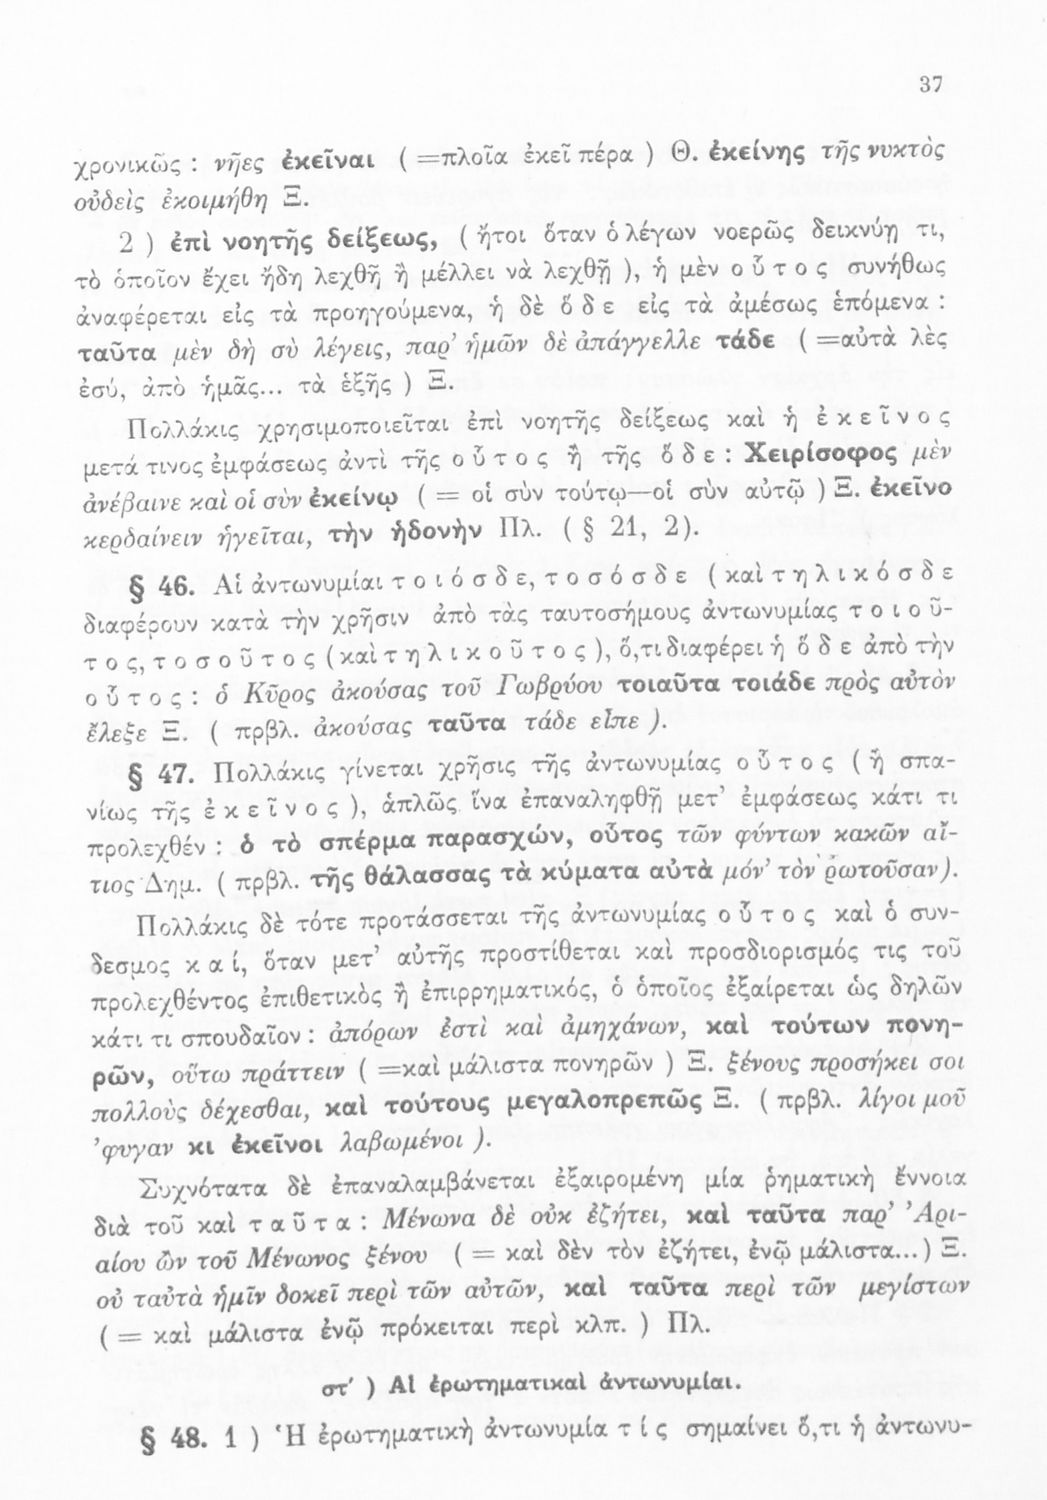 37
χρονικῶς : νῆες ἐκεῖναι ( =πλοῖα ἐκεῖ πέρα ) Θ. ἐκείνης τῆς νυκτὸς
οὐδεὶς ἐκοιμήθη Ξ.
2 ) ἐπὶ νοητῆς δείξεως, ( ἤτοι ὅταν ὁ λέγων νοερῶς δεικνύῃ τι,
τὸ ὁποῖον ἔχει ἤδη λεχθῆ ἢ μέλλει νὰ λεχθῇ ), ἡ μὲν οὗτος συνήθως
ἀναφέρεται εἰς τὰ προηγούμενα, ἡ δὲ ὅδε εἰς τὰ ἀμέσως ἑπόμενα :
ταῦτα μὲν δὴ σὺ λέγεις, παρ’ ἡμῶν δὲ ἀπάγγελλε τάδε ( =αὐτὰ λὲς
ἐσύ, ἀπὸ ἡμᾶς... τὰ ἑξῆς ) Ξ.
Πολλάκις χρησιμοποιεῖται ἐπὶ νοητῆς δείξεως καὶ ἡ ἐκεῖνος
μετά τινος ἐμφάσεως ἀντὶ τῆς οὗτος ἢ τῆς ὅδε : Χειρίσοφος μὲν
ἀνέβαινε καὶ οἱ σὺν ἐκείνῳ ( = οἱ σὺν τούτῳ—οἱ σὺν αὐτῷ ) Ξ. ἐκεῖνο
κερδαίνειν ἡγεῖται, τὴν ἡδονὴν Πλ. ( § 21, 2).
§ 46. Αἱ ἀντωνυμίαι τοιόσδε, τοσόσδε (καὶ τηλικόσδε
διαφέρουν κατὰ τὴν χρῆσιν ἀπὸ τὰς ταυτοσήμους ἀντωνυμίας τοιοῦ-
τος, τοσοῦτος (καὶ τηλικοῦτος), ὅ,τι διαφέρει ἡ ὅδε ἀπὸ τὴν
οὗτος : ὁ Κῦρος ἀκούσας τοῦ Γωβρύου τοιαῦτα τοιάδε πρὸς αὐτὸν
ἔλεξε Ξ. ( πρβλ. ἀκούσας ταῦτα τάδε εἶπε ).
§ 47. Πολλάκις γίνεται χρῆσις τῆς ἀντωνυμίας οὗτος (ἢ σπα-
νίως τῆς ἐκεῖνος ), ἁπλῶς ἵνα ἐπαναληφθῇ μετ’ ἐμφάσεως κάτι τι
προλεχθέν : ὁ τὸ σπέρμα παρασχών, οὗτος τῶν φύντων κακῶν αἴ-
τιος Δημ. ( πρβλ. τῆς θάλασσας τὰ κύματα αὐτὰ μόν’ τὸν ρωτοῦσαν).
Πολλάκις δὲ τότε προτάσσεται τῆς ἀντωνυμίας οὗτος καὶ ὁ συν-
δεσμος καί, ὅταν μετ’ αὐτῆς προστίθεται καὶ προσδιορισμός τις τοῦ
προλεχθέντος ἐπιθετικὸς ἢ ἐπιρρηματικός, ὁ ὁποῖος ἐξαίρεται ὡς δηλῶν
κάτι τι σπουδαῖον : ἀπόρων ἐστὶ καὶ ἀμηχάνων, καὶ τούτων πονη-
ρῶν, οὕτω πράττειν ( =καὶ μάλιστα πονηρῶν ) Ξ. ξένους προσήκει σοι
πολλοὺς δέχεσθαι, καὶ τούτους μεγαλοπρεπῶς Ξ. ( πρβλ. λίγοι μοῦ
’φυγαν κι ἐκεῖνοι λαβωμένοι ).
Συχνότατα δὲ ἐπαναλαμβάνεται ἐξαιρομένη μία ῥηματικὴ ἔννοια
διὰ τοῦ καὶ ταῦτα : Μένωνα δὲ οὐκ ἐζήτει, καὶ ταῦτα παρ’ ’Αρι-
αίου ὢν τοῦ Μένωνος ξένου ( = καὶ δὲν τὸν ἐζήτει, ἐνῷ μάλιστα...) Ξ.
οὐ ταὐτὰ ἡμῖν δοκεῖ περὶ τῶν αὐτῶν, καὶ ταῦτα περὶ τῶν μεγίστων
( = καὶ μάλιστα ἐνῷ πρόκειται περὶ κλπ. ) Πλ.
στ′ ) Αἱ ἐρωτηματικαὶ ἀντωνυμίαι.
§ 48. 1 ) Ἡ ἐρωτηματικὴ ἀντωνυμία τίς σημαίνει ὅ,τι ἡ ἀντωνυ-